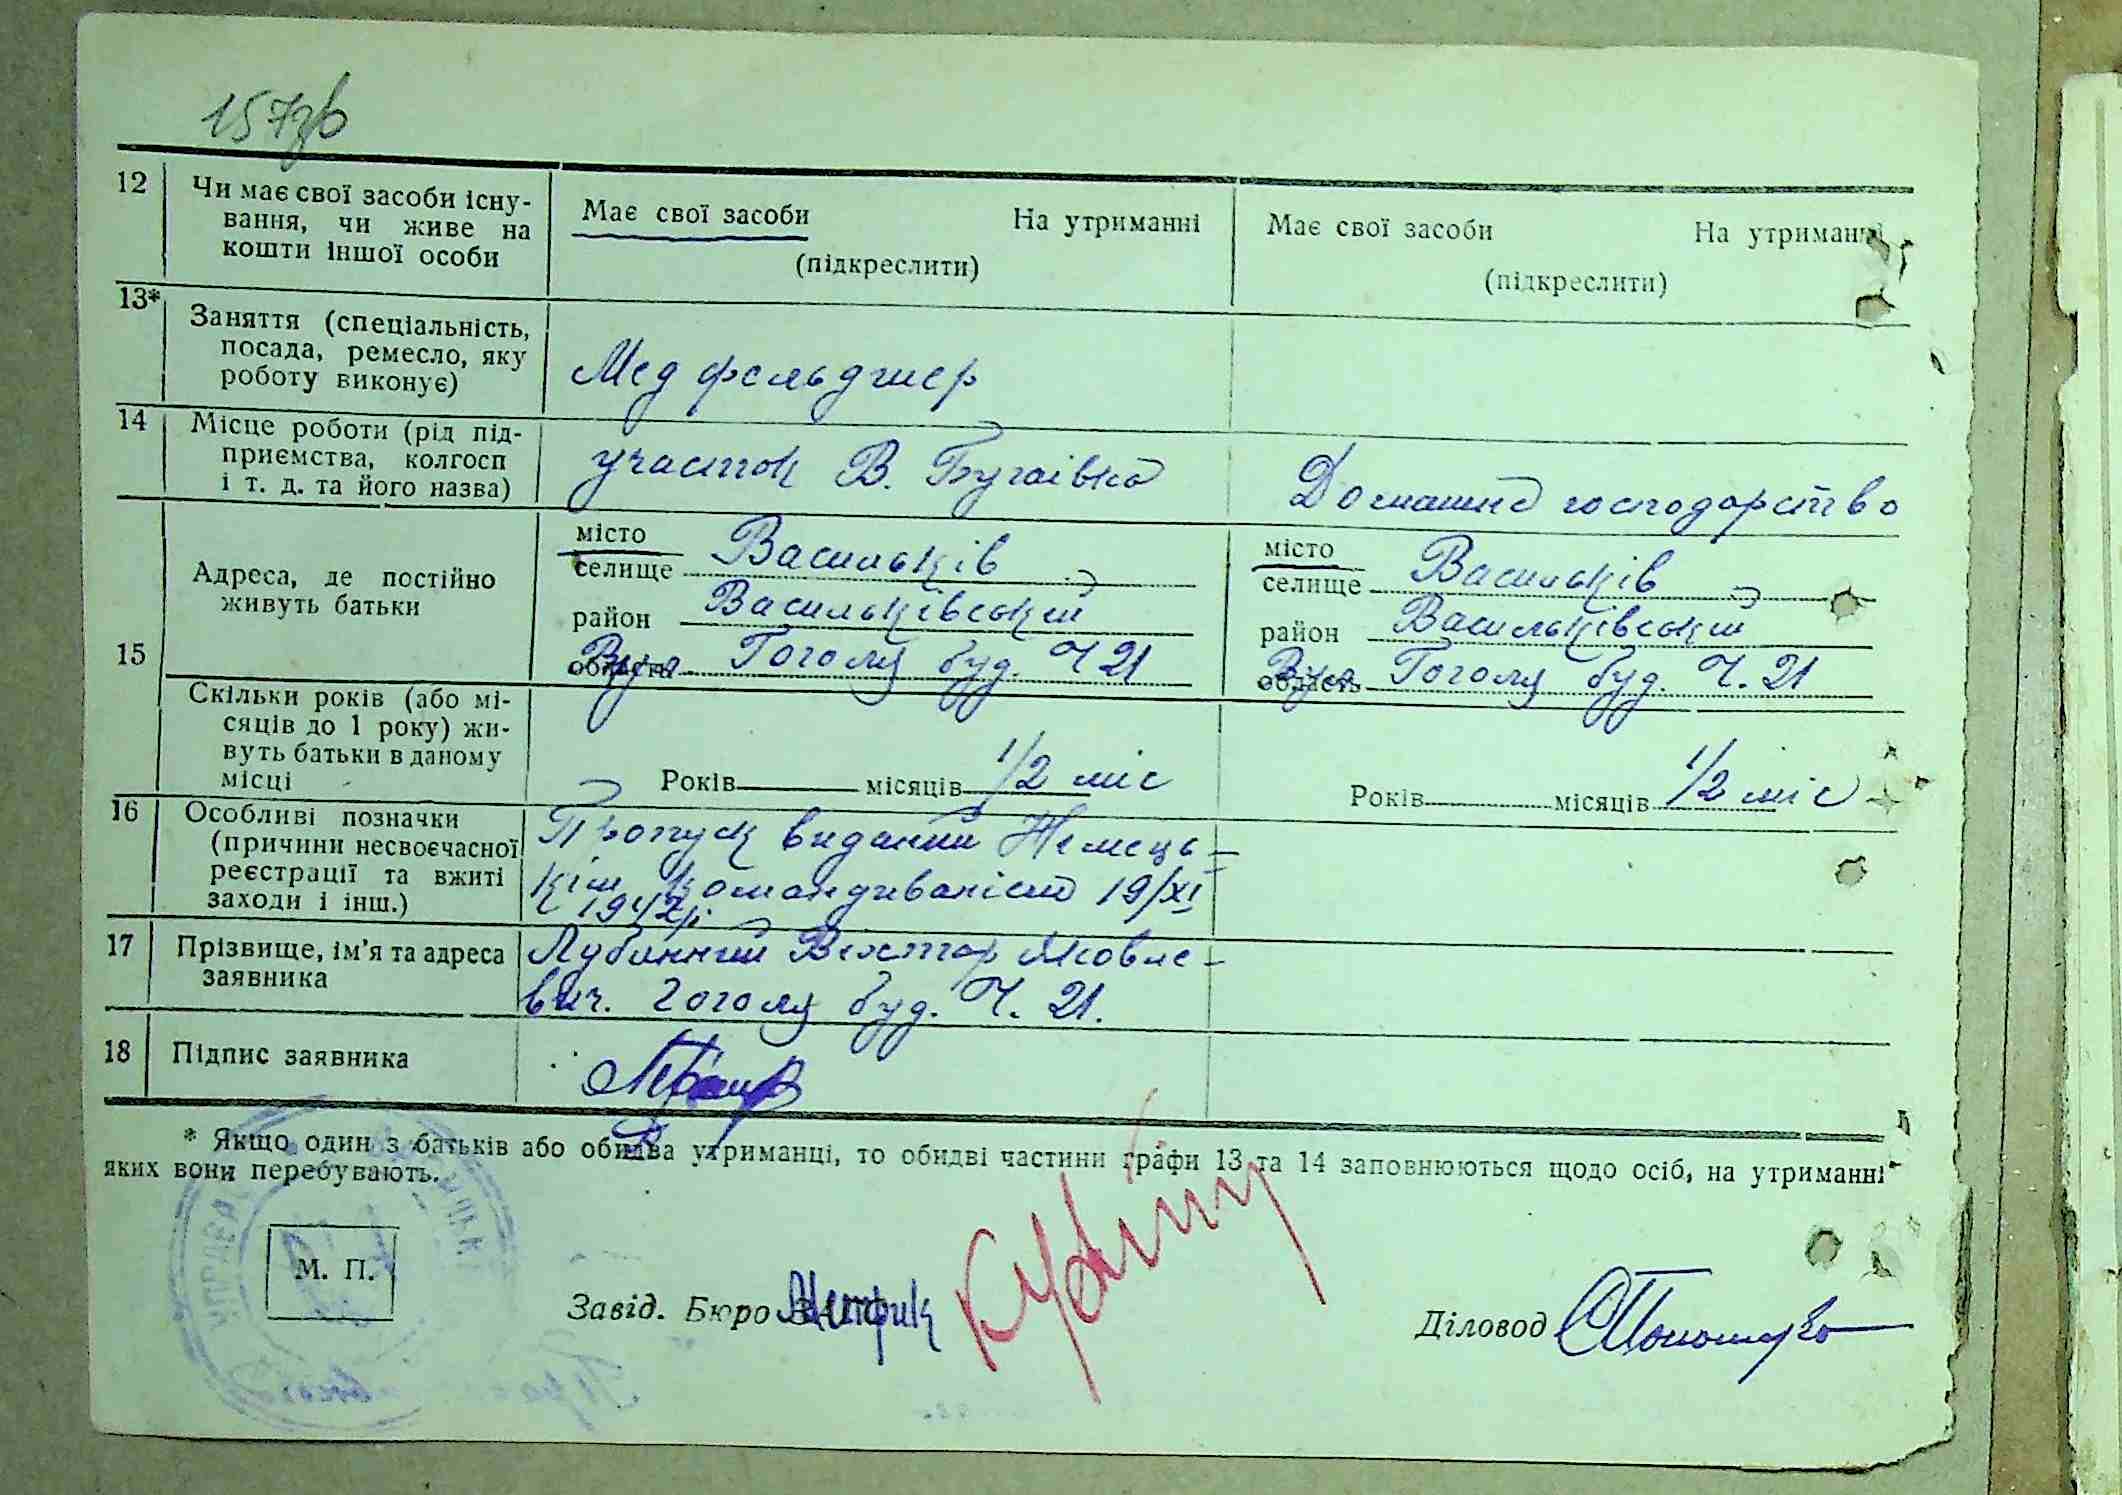 157зв
12 Чи має свої засоби існу-
вання, чи живе на
кошти іншої особи
Має свої засоби На утриманні
(підкреслити)
Має свої засоби На утриманні
(підкреслити)
13* Заняття (спеціальність,
посада, ремесло, яку
роботу виконує)
Мед фельдшер
14 Місце роботи (рід під-
приємства, колгосп
і т. д. та його назва)
участок В. Бугаївка
Домашнє господарство
15 Адреса, де постійно
живуть батьки
місто
селище Васильків
район Васильківський
область Вул. Гоголя буд. Ч 21
місто
селище Васильків
район Васильківський
область Вул. Гоголя буд. Ч. 21
Скільки років (або мі-
сяців до 1 року) жи-
вуть батьки в даному
місці
Років місяців 1/2 міс
Років місяців 1/2 міс
16 Особливі позначки
(причини несвоєчасної
реєстрації та вжиті
заходи і інш.)
Пропуск виданий Немець-
кім 19/XI
1942р.
17 Прізвище, ім'я та адреса
заявника
Лубинний Віктор Яковле-
вич. Гоголя буд. Ч. 21.
18 Підпис заявника
* Якщо один з батьків або обидва утриманці, то обидві частини графи 13 та 14 заповнюються щодо осіб, на утриманні
яких вони перебувають.
УПРАВА
М. П.
Завід. Бюро Метрик
Діловод